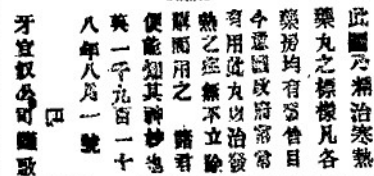 此圖乃精治寒熱
藥丸之標樣凡各
藥房均有寄售目
今意國政府常常
有用此丸以治發
熱之症無不立除
購而用之 諸君
便能知其神妙也
英一千九百一十
八年八月一號
牙宜奴公司謹啟